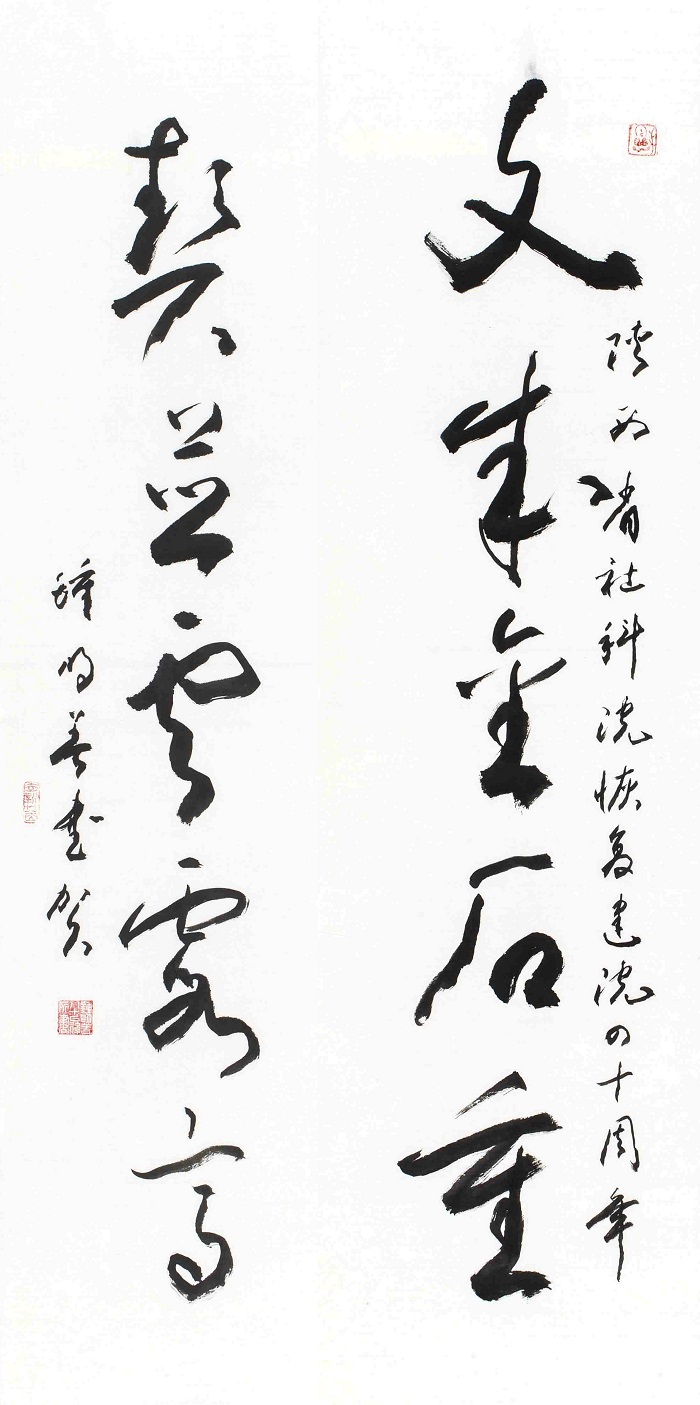 陕西省社科院恢复建院四十周年
文成金石重
契雲霞高
鍾明善书贺